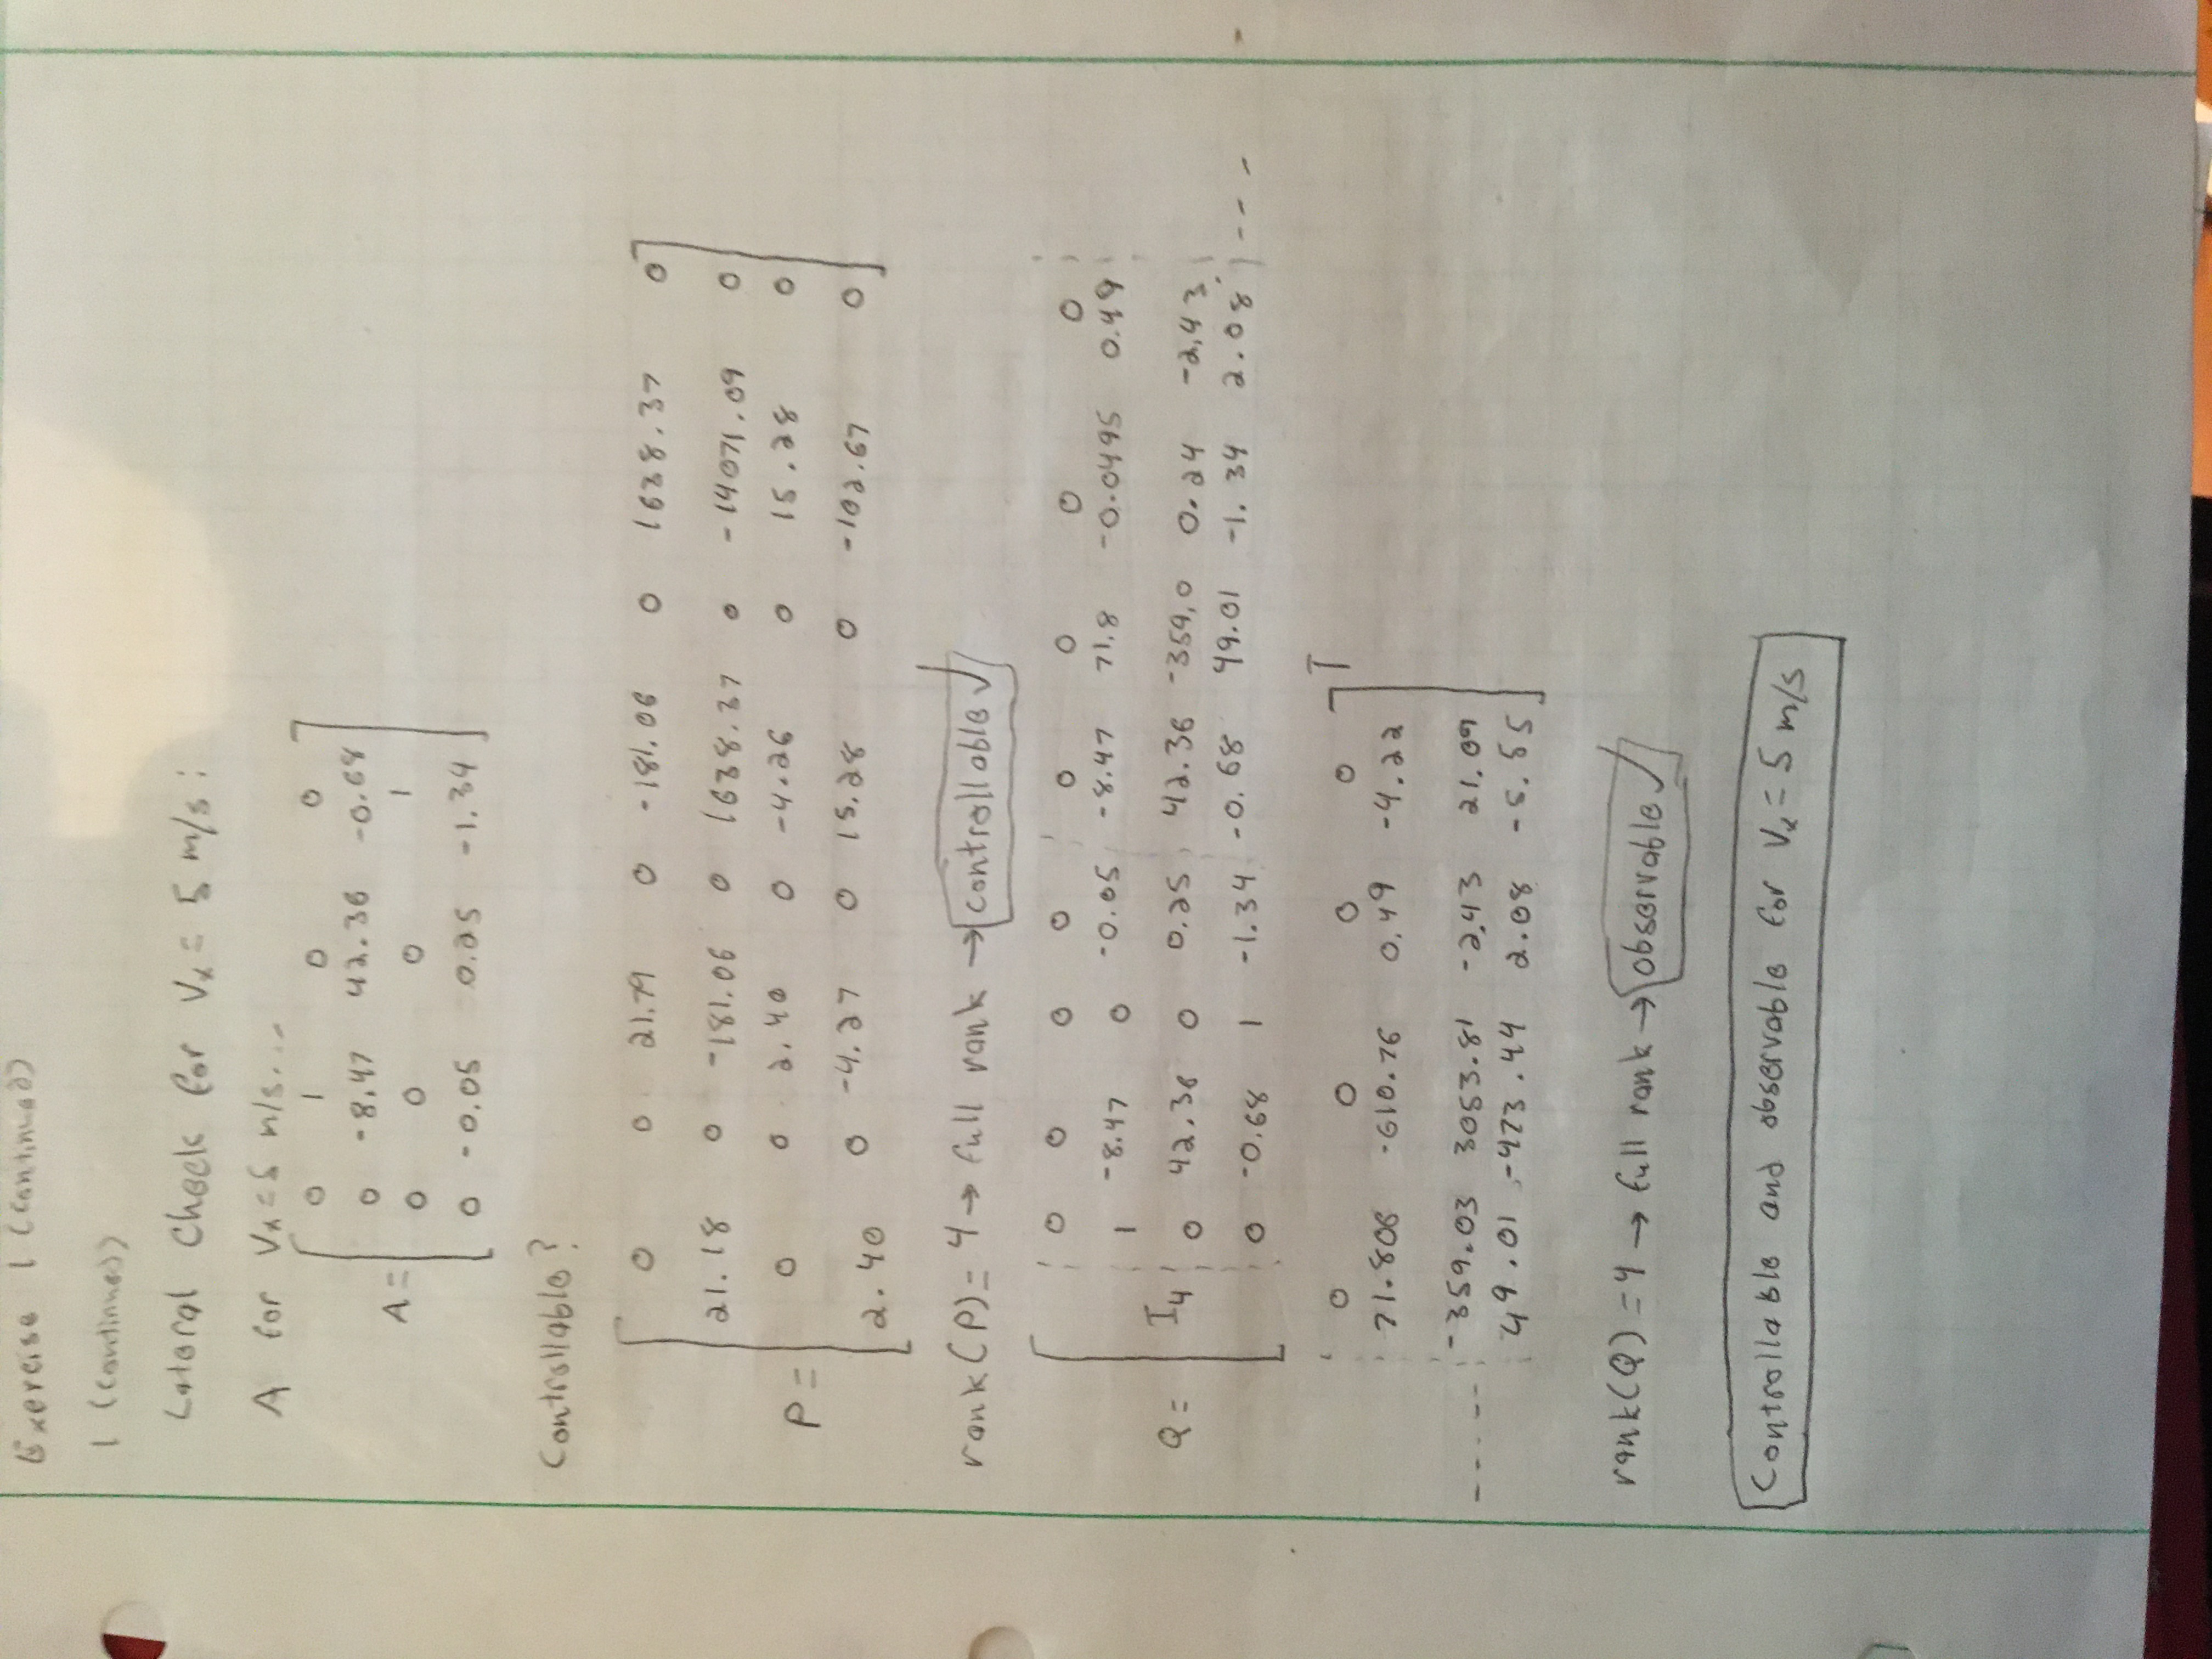 Exercise 1 (Continued)
1 (Continued)
Lateral Check for Vx = 5 m/s:
A for Vx = 5 m/s...
A = [ 0 1 0 0
0 -8.47 42.36 -0.68
0 0 0 1
0 -0.05 0.25 -1.34 ]
Controllable?
P = [ 0 0 21.79 0 -181.06 0 1638.37 0
21.18 0 -181.06 0 1638.37 0 -14071.09 0
0 0 2.40 0 -4.26 0 15.28 0
2.40 0 -4.27 0 15.28 0 -102.67 0 ]
rank(P) = 4 → full rank → controllable ✓
Q = [ I4 0 0 0 0 0 0 0 0
1 -8.47 0 -0.05 -8.47 71.8 -0.0495 0.49
0 42.36 0 0.25 42.36 -359.0 0.24 -2.43
0 -0.68 1 -1.34 -0.68 49.01 -1.34 2.08 ---
0 0 0 0 ]T
71.806 -610.76 0.49 -4.22
----- -359.03 3053.81 -2.43 21.09
49.01 -423.44 2.08 -5.55
rank(Q) = 4 → full rank → observable ✓
Controllable and observable for Vx = 5 m/s